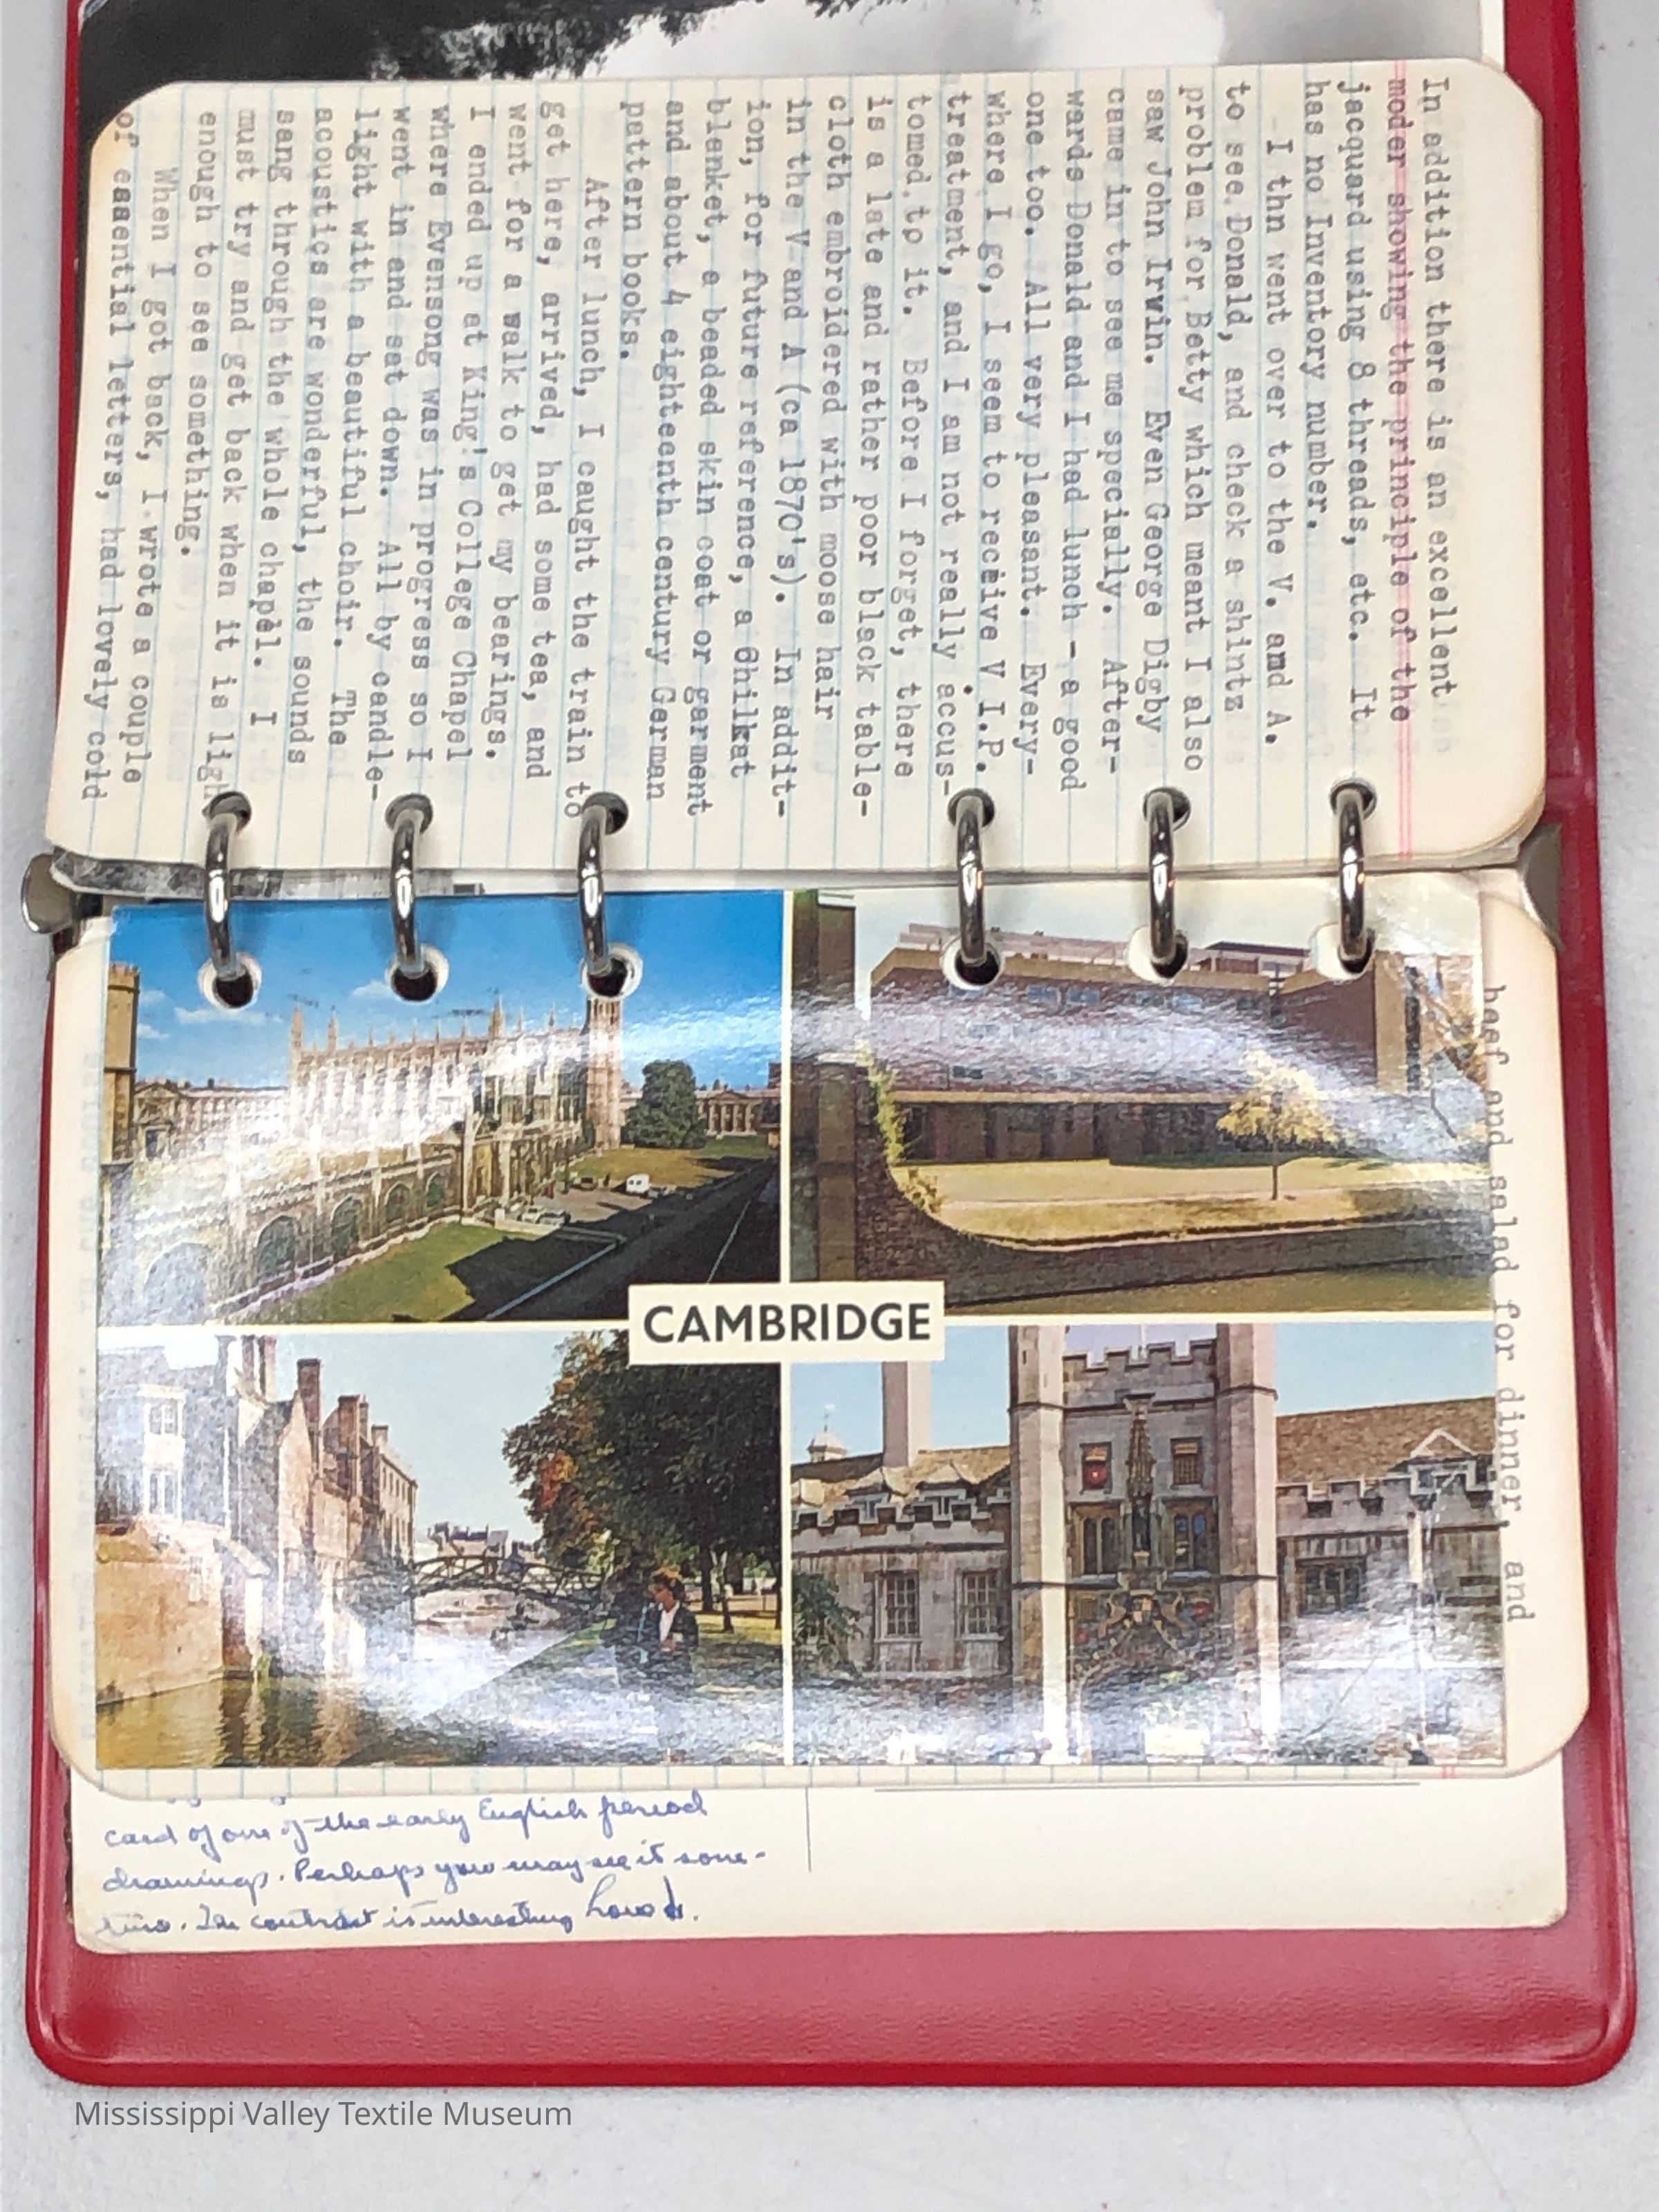 In addition there is an excellent
moder showing the principle of the
jacquard using 8 threads, etc. It
has no Inventory number.
I thn went over to the V. and A.
to see Donald, and check a shintz
problem for Betty which meant I also
saw John Irwin. Even George Digby
came in to see me specially. After-
wards Donald and I had lunch - a good
one too. All very pleasant. Every-
where I go, I seem to receive V I.P.
treatment, and I am not really accus-
tomed tp it. Before I forget, there
is a late and rather poor black table-
cloth embroidered with moose hair
in the V and A (ca 1870's). In addit-
ion, for future reference, a Chilkat
blanket, a beaded skin coat or garment
and about 4 eighteenth century German
pattern books.
After lunch, I caught the train to
get here, arrived, had some tea, and
went for a walk to get my bearings.
I ended up at King's College Chapel
where Evensong was in progress so I
went in and sat down. All by candle-
light with a beautiful choir. The
acoustics are wonderful, the sounds
sang through the whole chapel. I
must try and get back when it is ligh
enough to see something.
When I got back, I wrote a couple
of essential letters, had lovely cold
beef and salad for dinner, and
CAMBRIDGE
card of one of the early English period
drawings. Perhaps you may see it some-
time. The contrast is interesting
Mississippi Valley Textile Museum